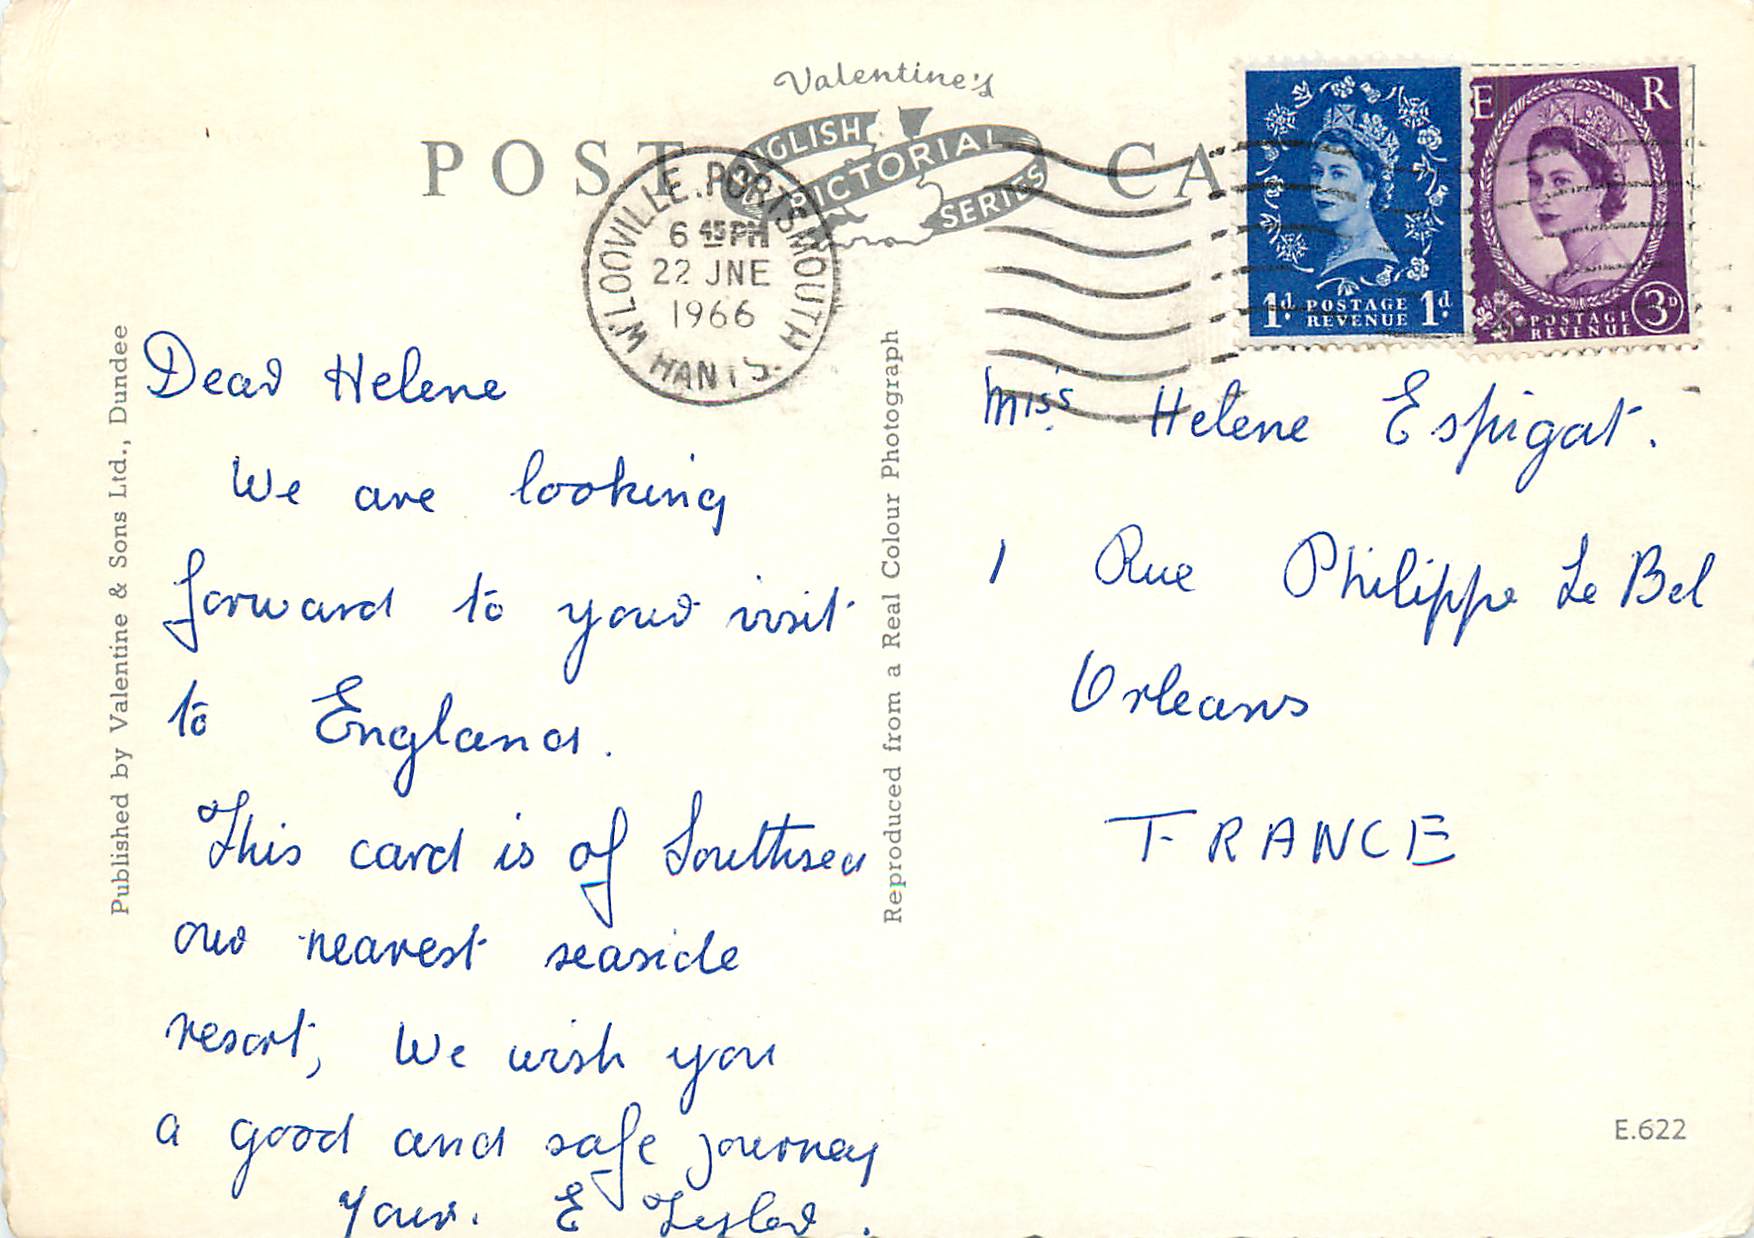 Valentine's
POST CA
ENGLISH
PICTORIAL
SERIES
W'LOOVILLE. PORTSMOUTH
6 45 PM
22 JNE
1966
HANTS.
1d POSTAGE 1d
REVENUE
E R
POSTAGE
REVENUE
3D
Published by Valentine & Sons Ltd., Dundee
Reproduced from a Real Colour Photograph
Dear Helene
We are looking
forward to your visit
to England.
This card is of Southsea
our nearest seaside
resort, We wish you
a good and safe journey
Your. E
Miss Helene Espigat.
1 Rue Philippe Le Bel
Orleans
FRANCE
E.622